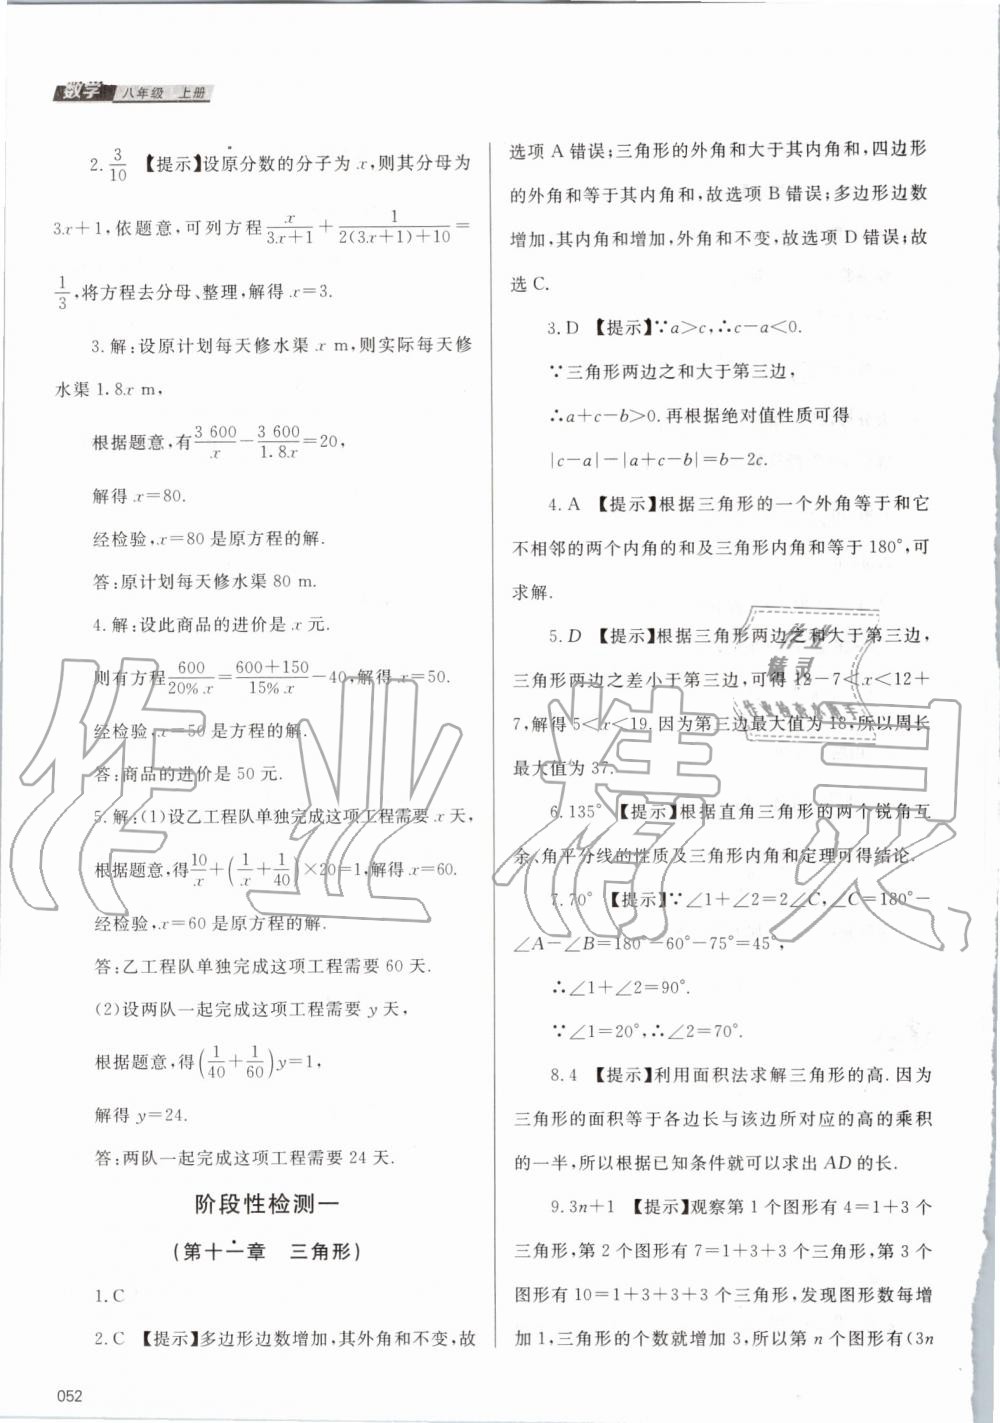 数学 八年级 上册
2. 3/10 【提示】设原分数的分子为 x,则其分母为
3x+1,依题意,可列方程 x/(3x+1) + 1/(2(3x+1)+10) =
1/3,将方程去分母、整理,解得 x=3.
3. 解:设原计划每天修水渠 x m,则实际每天修
水渠 1.8x m,
根据题意,有 3 600/x - 3 600/1.8x =20,
解得 x=80.
经检验,x=80 是原方程的解.
答:原计划每天修水渠 80 m.
4. 解:设此商品的进价是 x 元.
则有方程 600/20%x = (600+150)/15%x -40,解得 x=50.
经检验,x=50 是方程的解.
答:商品的进价是 50 元.
5. 解:(1)设乙工程队单独完成这项工程需要 x 天,
根据题意,得 10/x +(1/x + 1/40)×20=1,解得 x=60.
经检验,x=60 是原方程的解.
答:乙工程队单独完成这项工程需要 60 天.
(2)设两队一起完成这项工程需要 y 天,
根据题意,得(1/40 + 1/60)y=1,
解得 y=24.
答:两队一起完成这项工程需要 24 天.
阶段性检测一
(第十一章 三角形)
1. C
2. C 【提示】多边形边数增加,其外角和不变,故
选项 A 错误;三角形的外角和大于其内角和,四边形
的外角和等于其内角和,故选项 B 错误;多边形边数
增加,其内角和增加,外角和不变,故选项 D 错误;故
选 C.
3. D 【提示】∵a>c,∴c-a<0.
∵三角形两边之和大于第三边,
∴a+c-b>0. 再根据绝对值性质可得
|c-a|-|a+c-b|=b-2c.
4. A 【提示】根据三角形的一个外角等于和它
不相邻的两个内角的和及三角形内角和等于 180°,可
求解.
5. D 【提示】根据三角形两边之和大于第三边,
三角形两边之差小于第三边,可得 12-7<x<12+
7,解得 5<x<19. 因为第三边最大值为 18,所以周长
最大值为 37.
6. 135° 【提示】根据直角三角形的两个锐角互
余、角平分线的性质及三角形内角和定理可得结论.
7. 70° 【提示】∵∠1+∠2=2∠C,∠C=180°-
∠A-∠B=180°-60°-75°=45°,
∴∠1+∠2=90°.
∵∠1=20°,∴∠2=70°.
8. 4 【提示】利用面积法求解三角形的高. 因为
三角形的面积等于各边长与该边所对应的高的乘积
的一半,所以根据已知条件就可以求出 AD 的长.
9. 3n+1 【提示】观察第 1 个图形有 4=1+3 个
三角形,第 2 个图形有 7=1+3+3 个三角形,第 3 个
图形有 10=1+3+3+3 个三角形,发现图形数每增
加 1,三角形的个数就增加 3,所以第 n 个图形有(3n
052
作业精灵
作业
精灵